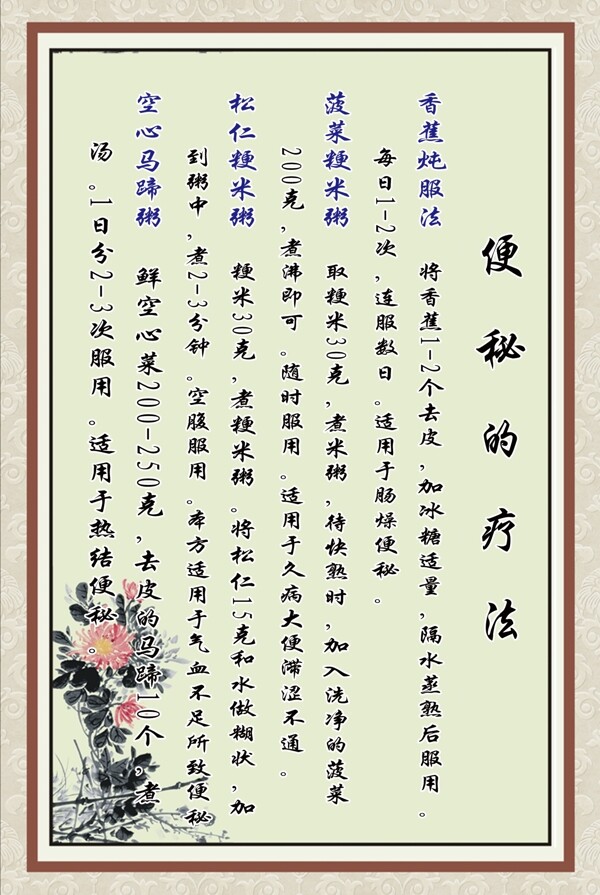 便秘的疗法
香蕉炖服法 将香蕉1-2个去皮,加冰糖适量,隔水蒸熟后服用。
每日1-2次,连服数日。适用于肠燥便秘。
菠菜粳米粥 取粳米30克,煮米粥,待快熟时,加入洗净的菠菜
200克,煮沸即可。随时服用。适用于久病大便滞涩不通。
松仁粳米粥 粳米30克,煮粳米粥。将松仁15克和水做糊状,加
到粥中,煮2-3分钟。空腹服用。本方适用于气血不足所致便秘
空心马蹄粥 鲜空心菜200-250克,去皮的马蹄10个,煮
汤。1日分2-3次服用。适用于热结便秘。